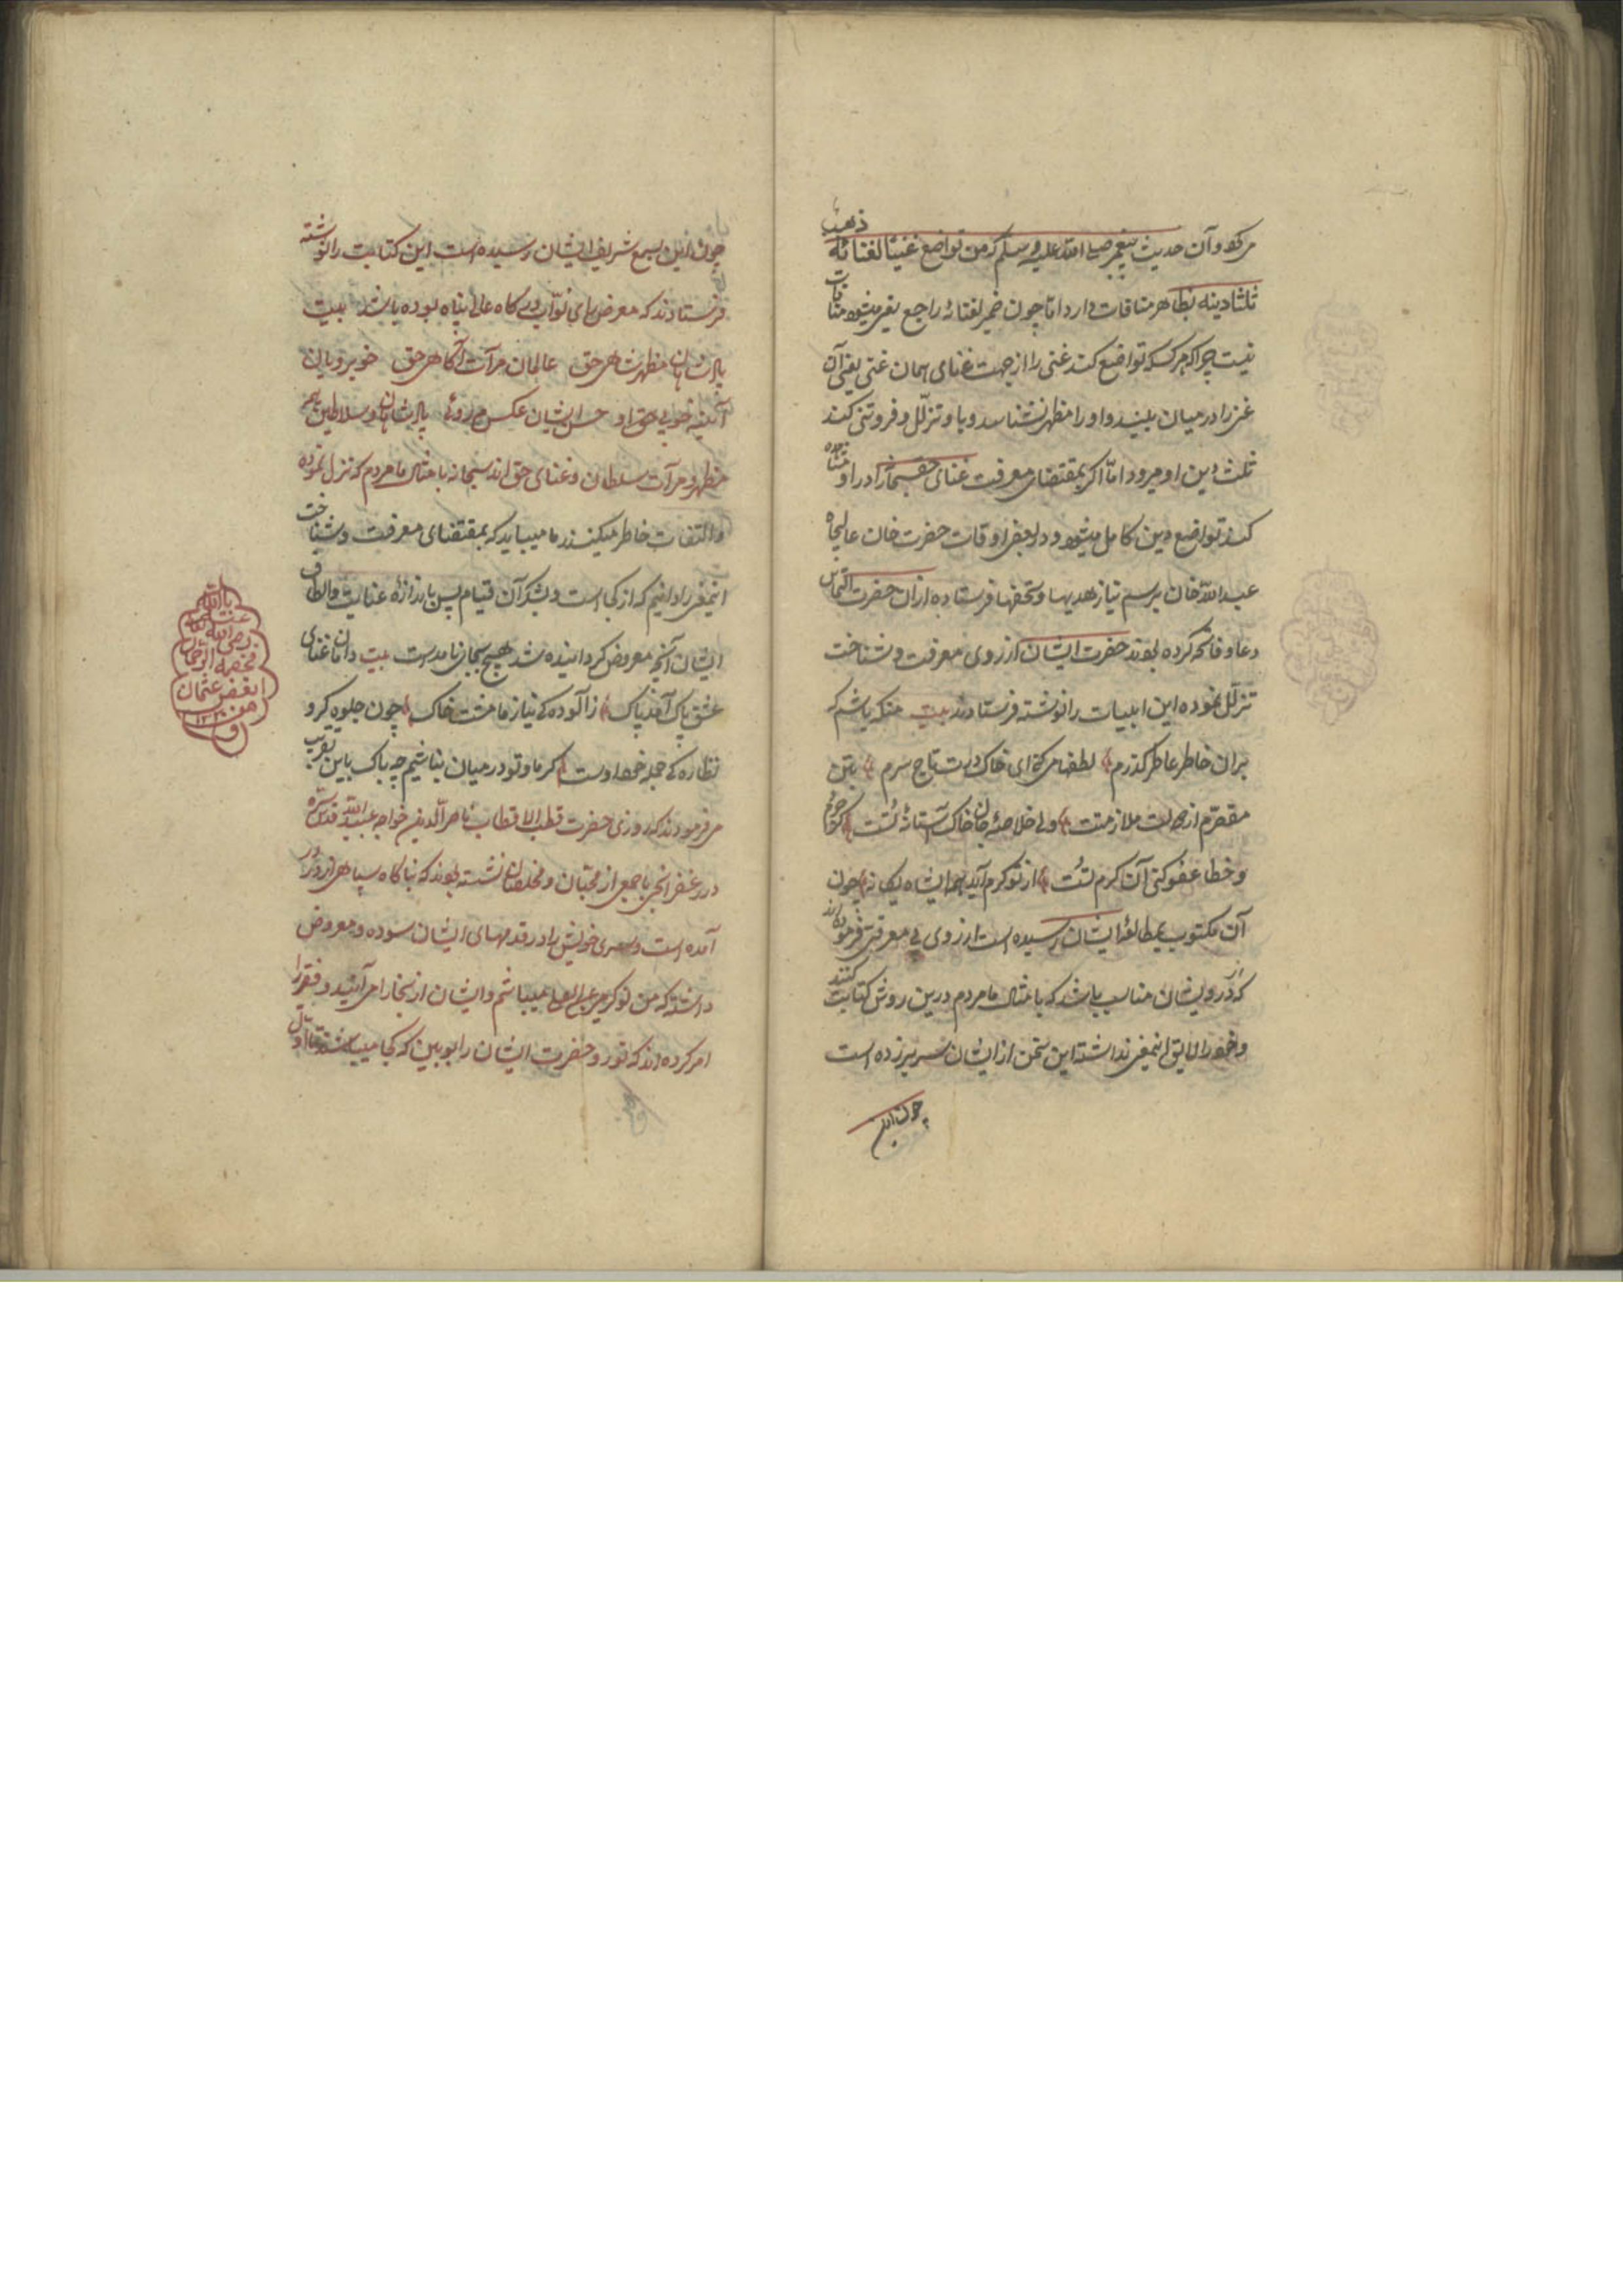 میکرد و آن حدیث پیغمبر صلی الله علیه و سلم که من تواضع غنیاً لغنائه ذهب
ثلثا دینه بظاهر منافات دارد اما چون ضمیر لغنائه راجع بغیر میشود منافات
نیست چرا که هر کسکه تواضع کند غنی را از جهت غنای همان غنی یعنی آن
غنی را در میان بیند و او را مظهر نشناسد و با و تزلل و فروتنی کند
ثلث دین او میرود اما اگر بمقتضای معرفت غنای حق سبحانه را در او مشاهده
کند تواضع دین کامل میشود و در بعض اوقات حضرت خان عالیجاه
عبدالله خان برسم نیاز هدیها و تحفها فرستاده از ان حضرت التماس
دعا و فاتحه کرده بودند حضرت ایشان از روی معرفت و شناخت
تزلل نموده این ابیات را نوشته فرستادند بیت منکه باشم که
بران خاطر عاطر گذرم لطفها میکنی ای خاک درت تاج سرم بتن
مقصرم از دولت ملازمتت ولی خلاصهٔ جان خاک آستانهٔ تست
و خطا عفو کنی آن کرم تست از تو کرم آید همه ای شاه یگانه چون
آن مکتوب بمطالعهٔ ایشان رسیده است از روی بی معرفتی فرموده اند
که از درویشان مناسب باشد که با مثال ما مردم درین روش کتابت کنند
و خود را لایق اینمعنی نداشته این سخن از ایشان سر بر زده است
چون این
چون این بسمع شریف ایشان رسیده است این کتابت را نوشته
فرستادند که معروض رای نواب درگاه عالم پناه بوده باشد بیت
پادشاهان مظهر شاهی حق عالمان مرآت آگاهی حق خوبرویان
آئینه خوبی حق او حسن ایشان عکس مه روئی پادشاهان و سلاطین هم
مظهر و مرآت سلطان و غنای حق اند سبحانه با مثال ما مردم که تنزل نموده
و التفات خاطر میکنند ما میباید که بمقتضای معرفت و شناخت
اینمعنی را دانیم که از کجا است و بشکر آن قیام پس باندازهٔ عنایت و الطاف
ایشان آنچه معروض گردانیده شد هیچ بجای نیامده است بیت دامان غنای
عشق پاک آمد پاک ز آلوده کی نیاز ما مشت خاک چون جلوه گر و
نظاره کی جمله خود اوست گر ما و تو در میان نباشیم چه باک باین تقریب
میفرمودند که روزی حضرت قطب الاقطاب ناصر الدین خواجه عبیدالله قدس سره
در با جمعی از محبان و مخلصان نشسته بودند که بناگاه سپاهی از در
آمده است و سری خویش را در قدمهای ایشان سوده و معروض
داشته که من نوکر میر عبد العلی میباشم و ایشان از بخارا می آئید و فقیر را
امر کرده اند که تو رو حضرت ایشان را بو ببین که کجا میباشند تا